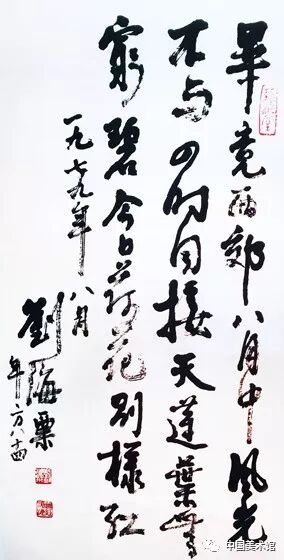 畢竟西郊八月中風光
不与四时同接天蓮葉無
窮碧今日荷花别樣红
一九七九年八月
劉海粟
年方八十四
中国美术馆